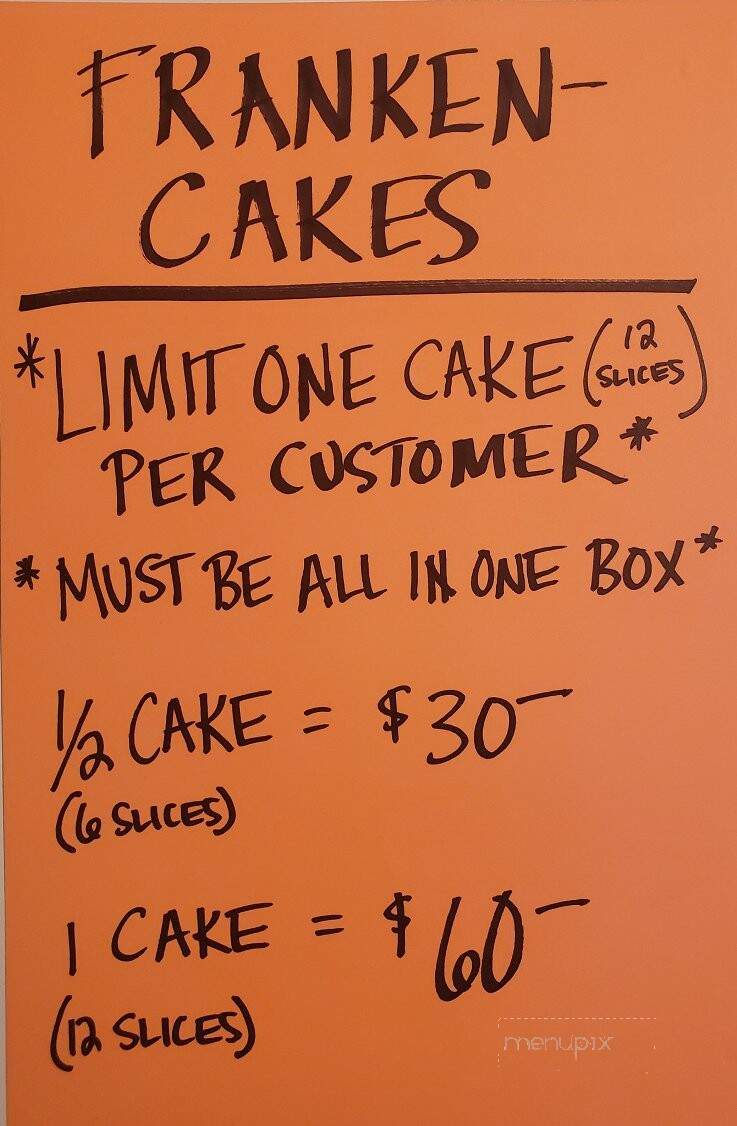 FRANKEN-
CAKES
*LIMIT ONE CAKE (12 SLICES)
PER CUSTOMER*
*MUST BE ALL IN ONE BOX*
1/2 CAKE = $30-
(6 SLICES)
1 CAKE = $60-
(12 SLICES)
menupix